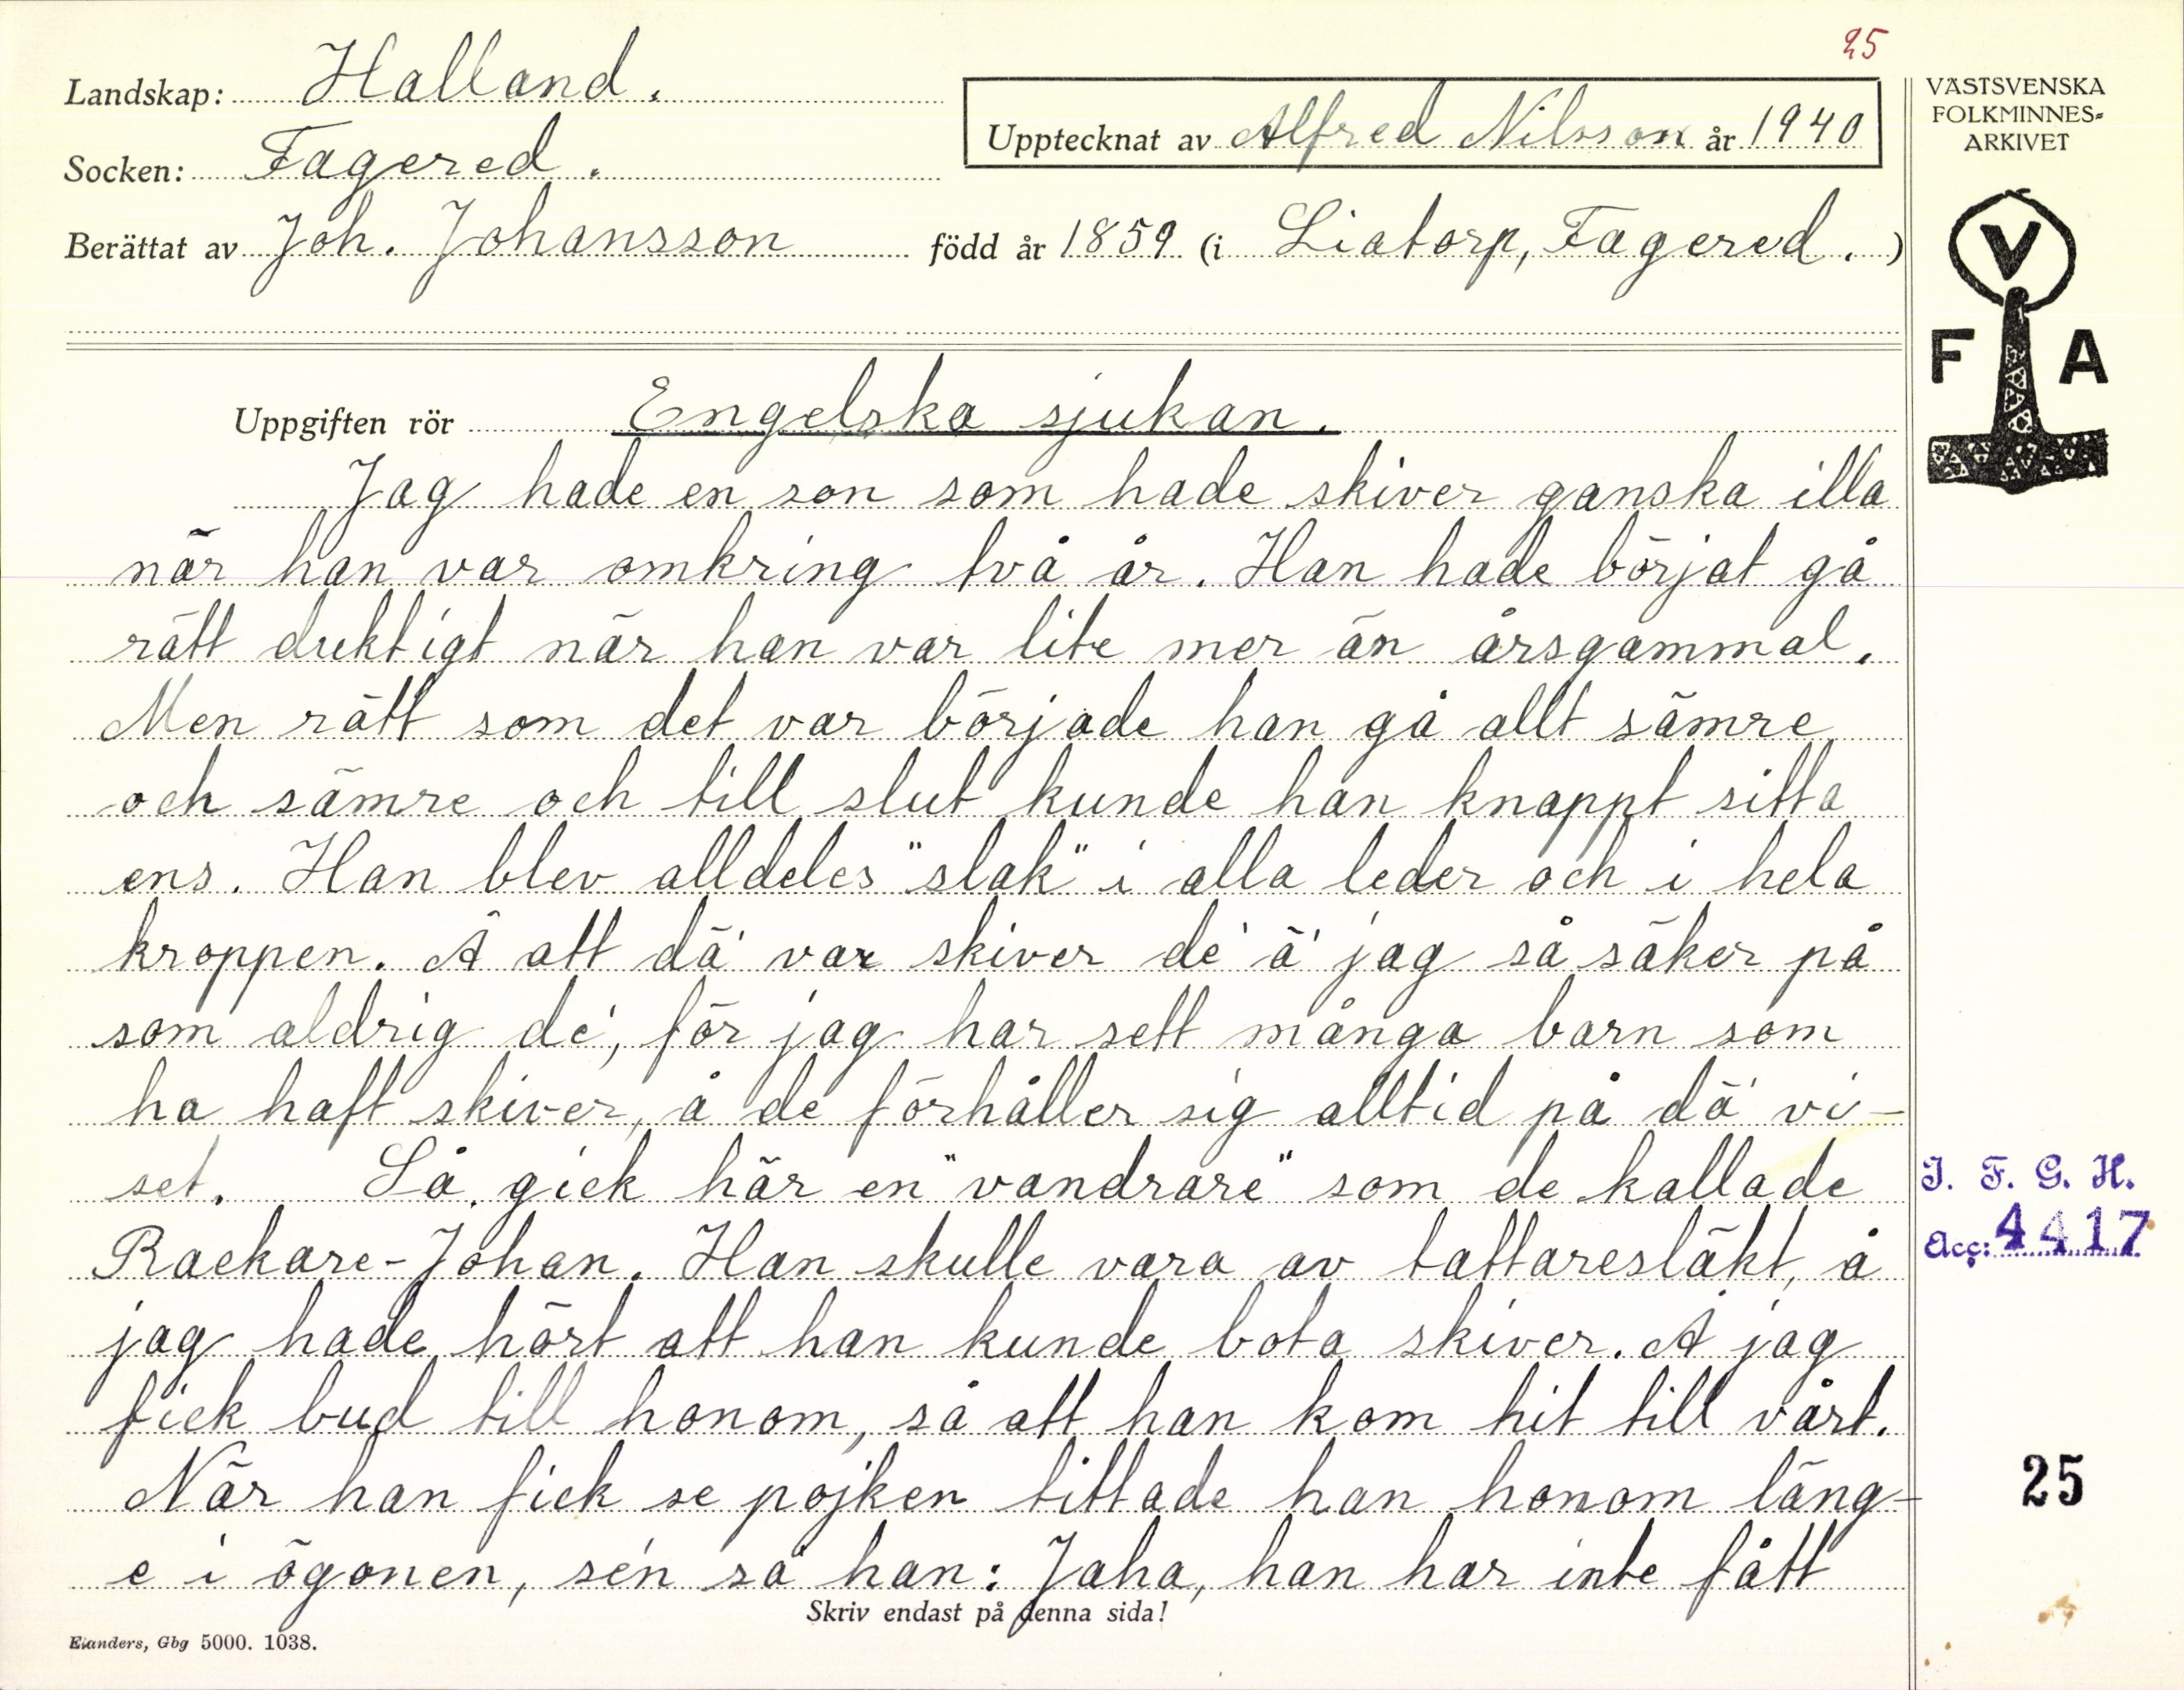 25
Landskap: Halland.
Upptecknat av Alfred Nilsson år 1940
Socken: Fagered.
Berättat av Joh. Johansson född år 1859 (i Liatorp, Fagered.)
VÄSTSVENSKA
FOLKMINNES-
ARKIVET
V
F A
Uppgiften rör Engelska sjukan.
Jag hade en son som hade skiver ganska illa
när han var omkring två år. Han hade börjat gå
rätt duktigt när han var lite mer än årsgammal.
Men rätt som det var började han gå allt sämre
och sämre och till slut kunde han knappt sitta
ens. Han blev alldeles "slak" i alla leder och i hela
kroppen. Å att dä' var skiver de' ä' jag så säker på
som aldrig de', för jag har sett många barn som
ha haft skiver, å de förhåller sig alltid på dä' vi-
set. Så gick här en "vandrare" som de kallade
Rackare-Johan. Han skulle vara av tattaresläkt, å
jag hade hört att han kunde bota skiver. Å jag
fick bud till honom, så att han kom hit till vårt.
När han fick se pojken tittade han honom läng-
e i ögonen, se'n sa' han: Jaha, han har inte fått
Skriv endast på denna sida!
Elanders, Gbg 5000. 1038.
I. F. G. H.
Acc: 4417
25